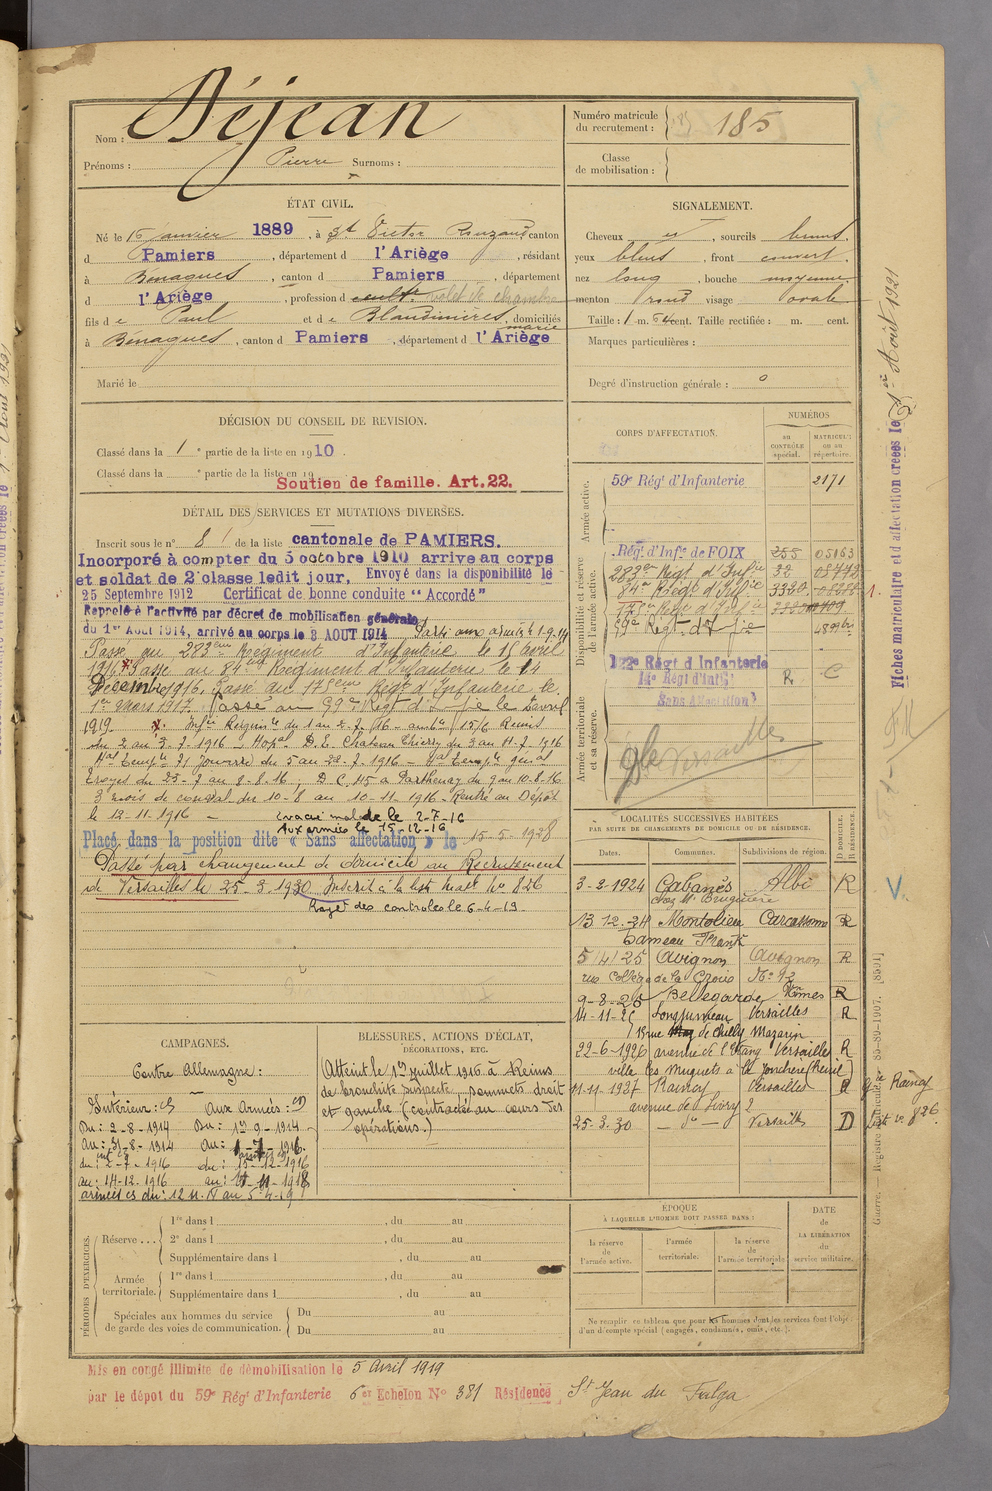 Nom : Déjean
Prénoms : Pierre Surnoms :
Numéro matricule du recrutement : 185
Classe de mobilisation :
ÉTAT CIVIL.
Né le 15 janvier 1889, à St Victor Rouzaud, canton
d Pamiers, département d l'Ariège, résidant
à Bénagues, canton d Pamiers, département
d l'Ariège, profession d cultr valet de chambre
fils de Paul et de Blandinières, domiciliés
à Bénagues, canton d Pamiers, département d l'Ariège
Marié le
SIGNALEMENT.
Cheveux et, sourcils bruns,
yeux bleus, front couvert,
nez long, bouche moyenne,
menton rond visage ovale
Taille : 1 m. 64 cent. Taille rectifiée : m. cent.
Marques particulières :
Degré d'instruction générale : 0
DÉCISION DU CONSEIL DE REVISION.
Classé dans la 1e partie de la liste en 1910.
Classé dans la e partie de la liste en 19
Soutien de famille. Art. 22.
DÉTAIL DES SERVICES ET MUTATIONS DIVERSES.
Inscrit sous le n° 81 de la liste cantonale de PAMIERS.
Incorporé à compter du 5 octobre 1910 arrive au corps
et soldat de 2e classe ledit jour, Envoyé dans la disponibilité le
25 Septembre 1912 Certificat de bonne conduite "Accordé"
Rappelé à l'activité par décret de mobilisation générale
du 1er Août 1914, arrivé au corps le 3 AOUT 1914 Parti aux armées 1-9-14
Passé au 283ème Régiment d'Infanterie le 15 avril
1916 Passé au 84ème Régiment d'Infanterie le 14
Décembre 1916. Passé au 175ème Régt d'Infanterie le
1er Mars 1917. Passé au 99e Régt d'Ie le 2 avril
1919. Infie Reims du 1 au 2-7-16 - ambce 15/6 Reims
du 2 au 3-7-1916 - Hopal D.E. Chateau Thierry du 3 au 11-7-1916
D.C. 45 à Parthenay du 9 au 10-8-16
3 mois de conval. du 10-8 au 10-11-1916 - Rentré au Dépôt
le 12-11-1916 - Evacué malade le 2-7-16
Aux armées le 15-12-16
Placé dans la position dite « Sans affectation » le 15-5-1928
Passé par changement de domicile au Recrutement
de Versailles le 25-3-1930 Inscrit à la liste matle No 826
Rayé des contrôles le 6-4-19
CORPS D'AFFECTATION.
NUMÉROS
au CONTRÔLE spécial.
MATRICULE ou au répertoire.
Armée active.
59e Régt d'Infanterie 2171
Disponibilité et réserve de l'armée active.
Régt d'Infie de FOIX 255 05163
283e Régt d'Infie 32 03772
84e Régt d'Infie 3320
175e Régt d'Infie
99e Régt d'Ie
122e Régt d'Infanterie R C
14e Régt d'Infie
Sans Affectation
Armée territoriale et sa réserve.
Versailles
LOCALITÉS SUCCESSIVES HABITÉES
PAR SUITE DE CHANGEMENTS DE DOMICILE OU DE RÉSIDENCE.
Dates. Communes. Subdivisions de région. D DOMICILE. R RÉSIDENCE.
3-2-1924 Cabanès Albi R
chez Mr Bruguière
13.12.24 Montolieu Carcassonne R
hameau Franc
5/4/25 Avignon Avignon R
rue Collège de la Croix No 92
9-8-25 Bellegarde Nîmes R
14-11-25 Longjumeau Versailles R
rue de Chilly Mazarin
22-6-1926 avenue de l'Etang Versailles R
ville les Muguets à la Jonchère (Rueil)
11-11-1927 Raincy Versailles R
avenue de Livry 2
25.3.30 — do — Versailles D
CAMPAGNES.
Contre Allemagne :
Intérieur : Aux Armées :
Du : 2-8-1914 Du : 1er 9-1914
au : 31-8-1914 au : 1-7-1916.
du : 2-7-1916 du : 15-12-1916
au : 14-12-1916 au : 11-11-1918
armées du : 12 N. au 5-4-19
BLESSURES, ACTIONS D'ÉCLAT,
DÉCORATIONS, ETC.
(Atteint le 1er juillet 1916 à Reims
de bronchite suspecte, sommets droit
et gauche (contractée au cours des
opérations.)
PÉRIODES D'EXERCICES.
Réserve ...
1re dans l , du au
2e dans l , du au
Supplémentaire dans l , du au
Armée territoriale.
1re dans l , du au
Supplémentaire dans l , du au
Spéciales aux hommes du service de garde des voies de communication.
Du au
Du au
ÉPOQUE
À LAQUELLE L'HOMME DOIT PASSER DANS :
la réserve de l'armée active.
l'armée territoriale.
la réserve de l'armée territoriale.
DATE
de
LA LIBÉRATION
du
service militaire.
Ne remplir ce tableau que pour les hommes dont les services font l'objet
d'un décompte spécial (engagés, condamnés, omis, etc.).
Mis en congé illimité de démobilisation le 5 Avril 1919
par le dépôt du 59e Régt d'Infanterie 6e Echelon No 381 Résidence St Jean du Falga
Fiches matriculaire et d'affectation créées le 1er Août 1921
Raincy
Liste No 826